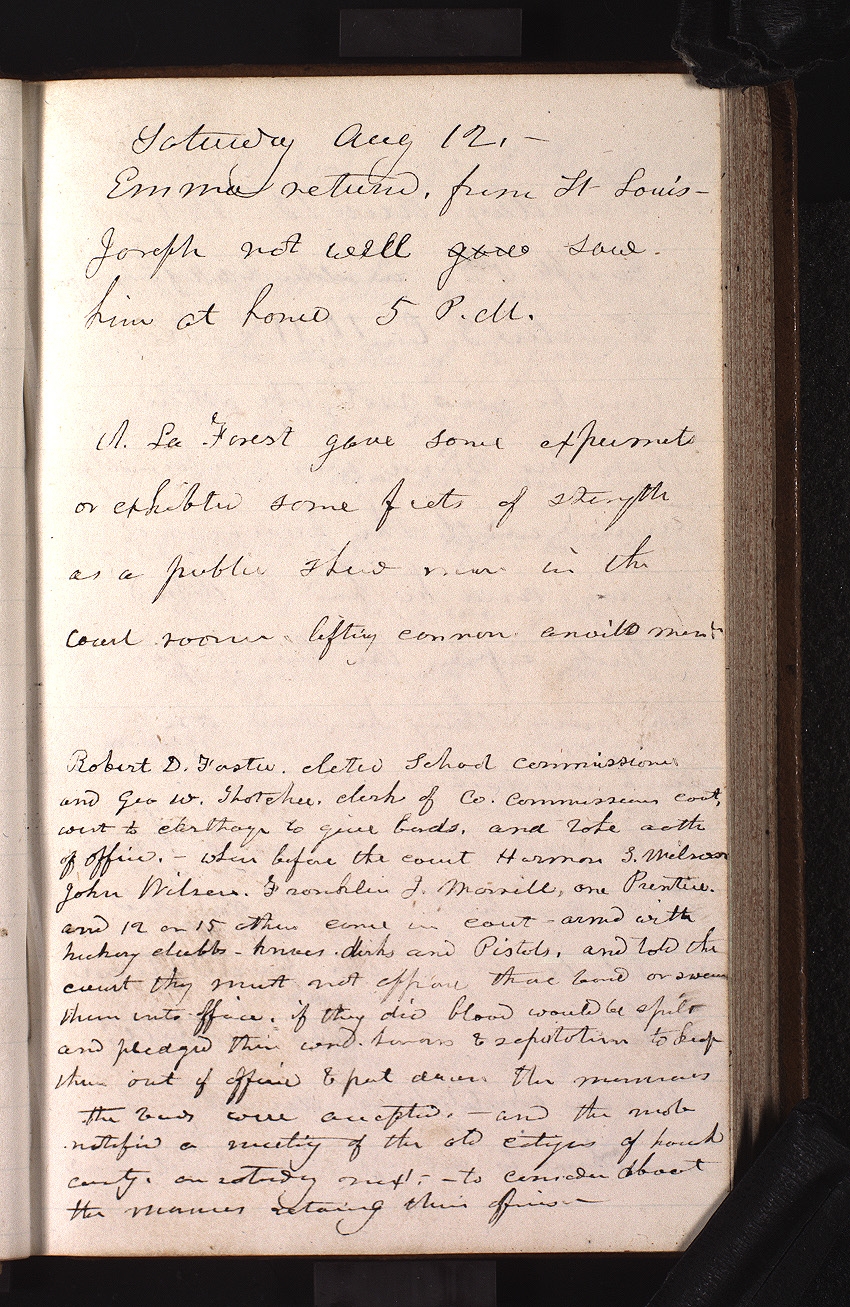 Saturday Aug 12. —
Emma return. from St Louis —
Joseph not well gave saw.
him at home 5 P.M.
A. La Forest gave some expeirmets
or exhibited some feets of strength
as a public shew man in the
court room. lifting cannon anvils men &c
Robert D. Foster. elected School commissioner
and Geo W. Thatcher. clerk of Co. commissiners cout,
went to carthage to give bonds. and take oath
of office. — when before the court Harmon T. Wilson
John Wilson. Franklin J. Morrill, one Prentice.
and 12 or 15 others came in cout — armed with
hickory clubbs — knives. dirks and Pistols. and told the
court they must not approve thare bond or swear
them into office. if they did blood would be spilt
and pledged their word. honors & reputation to keep
them out of office & put down the mormons
the bonds were accepted. — and the mob
notified a meeting of the old citizns of hancock
county. on saturday next. — to consider about
the mormons retaing their offices —